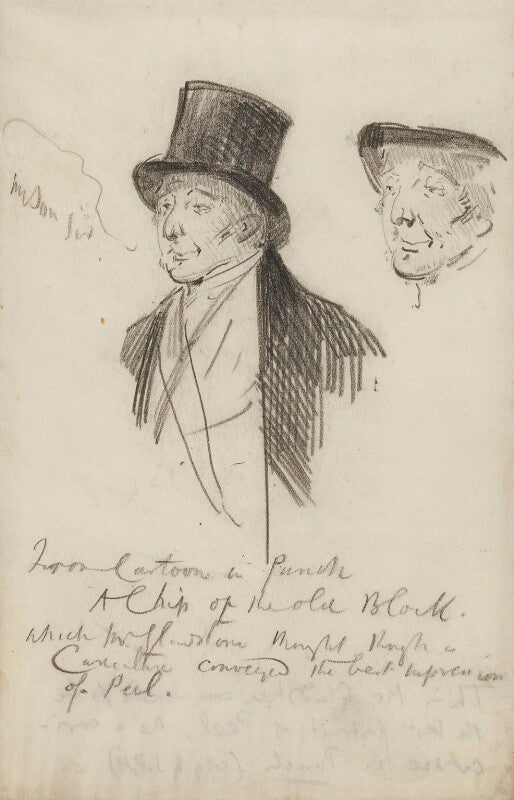 my Son
Sir
From Cartoon in Punch
A Chip of the old Block.
which Mr Gladstone thought though a
Caricature conveyed the best impression
of Peel.